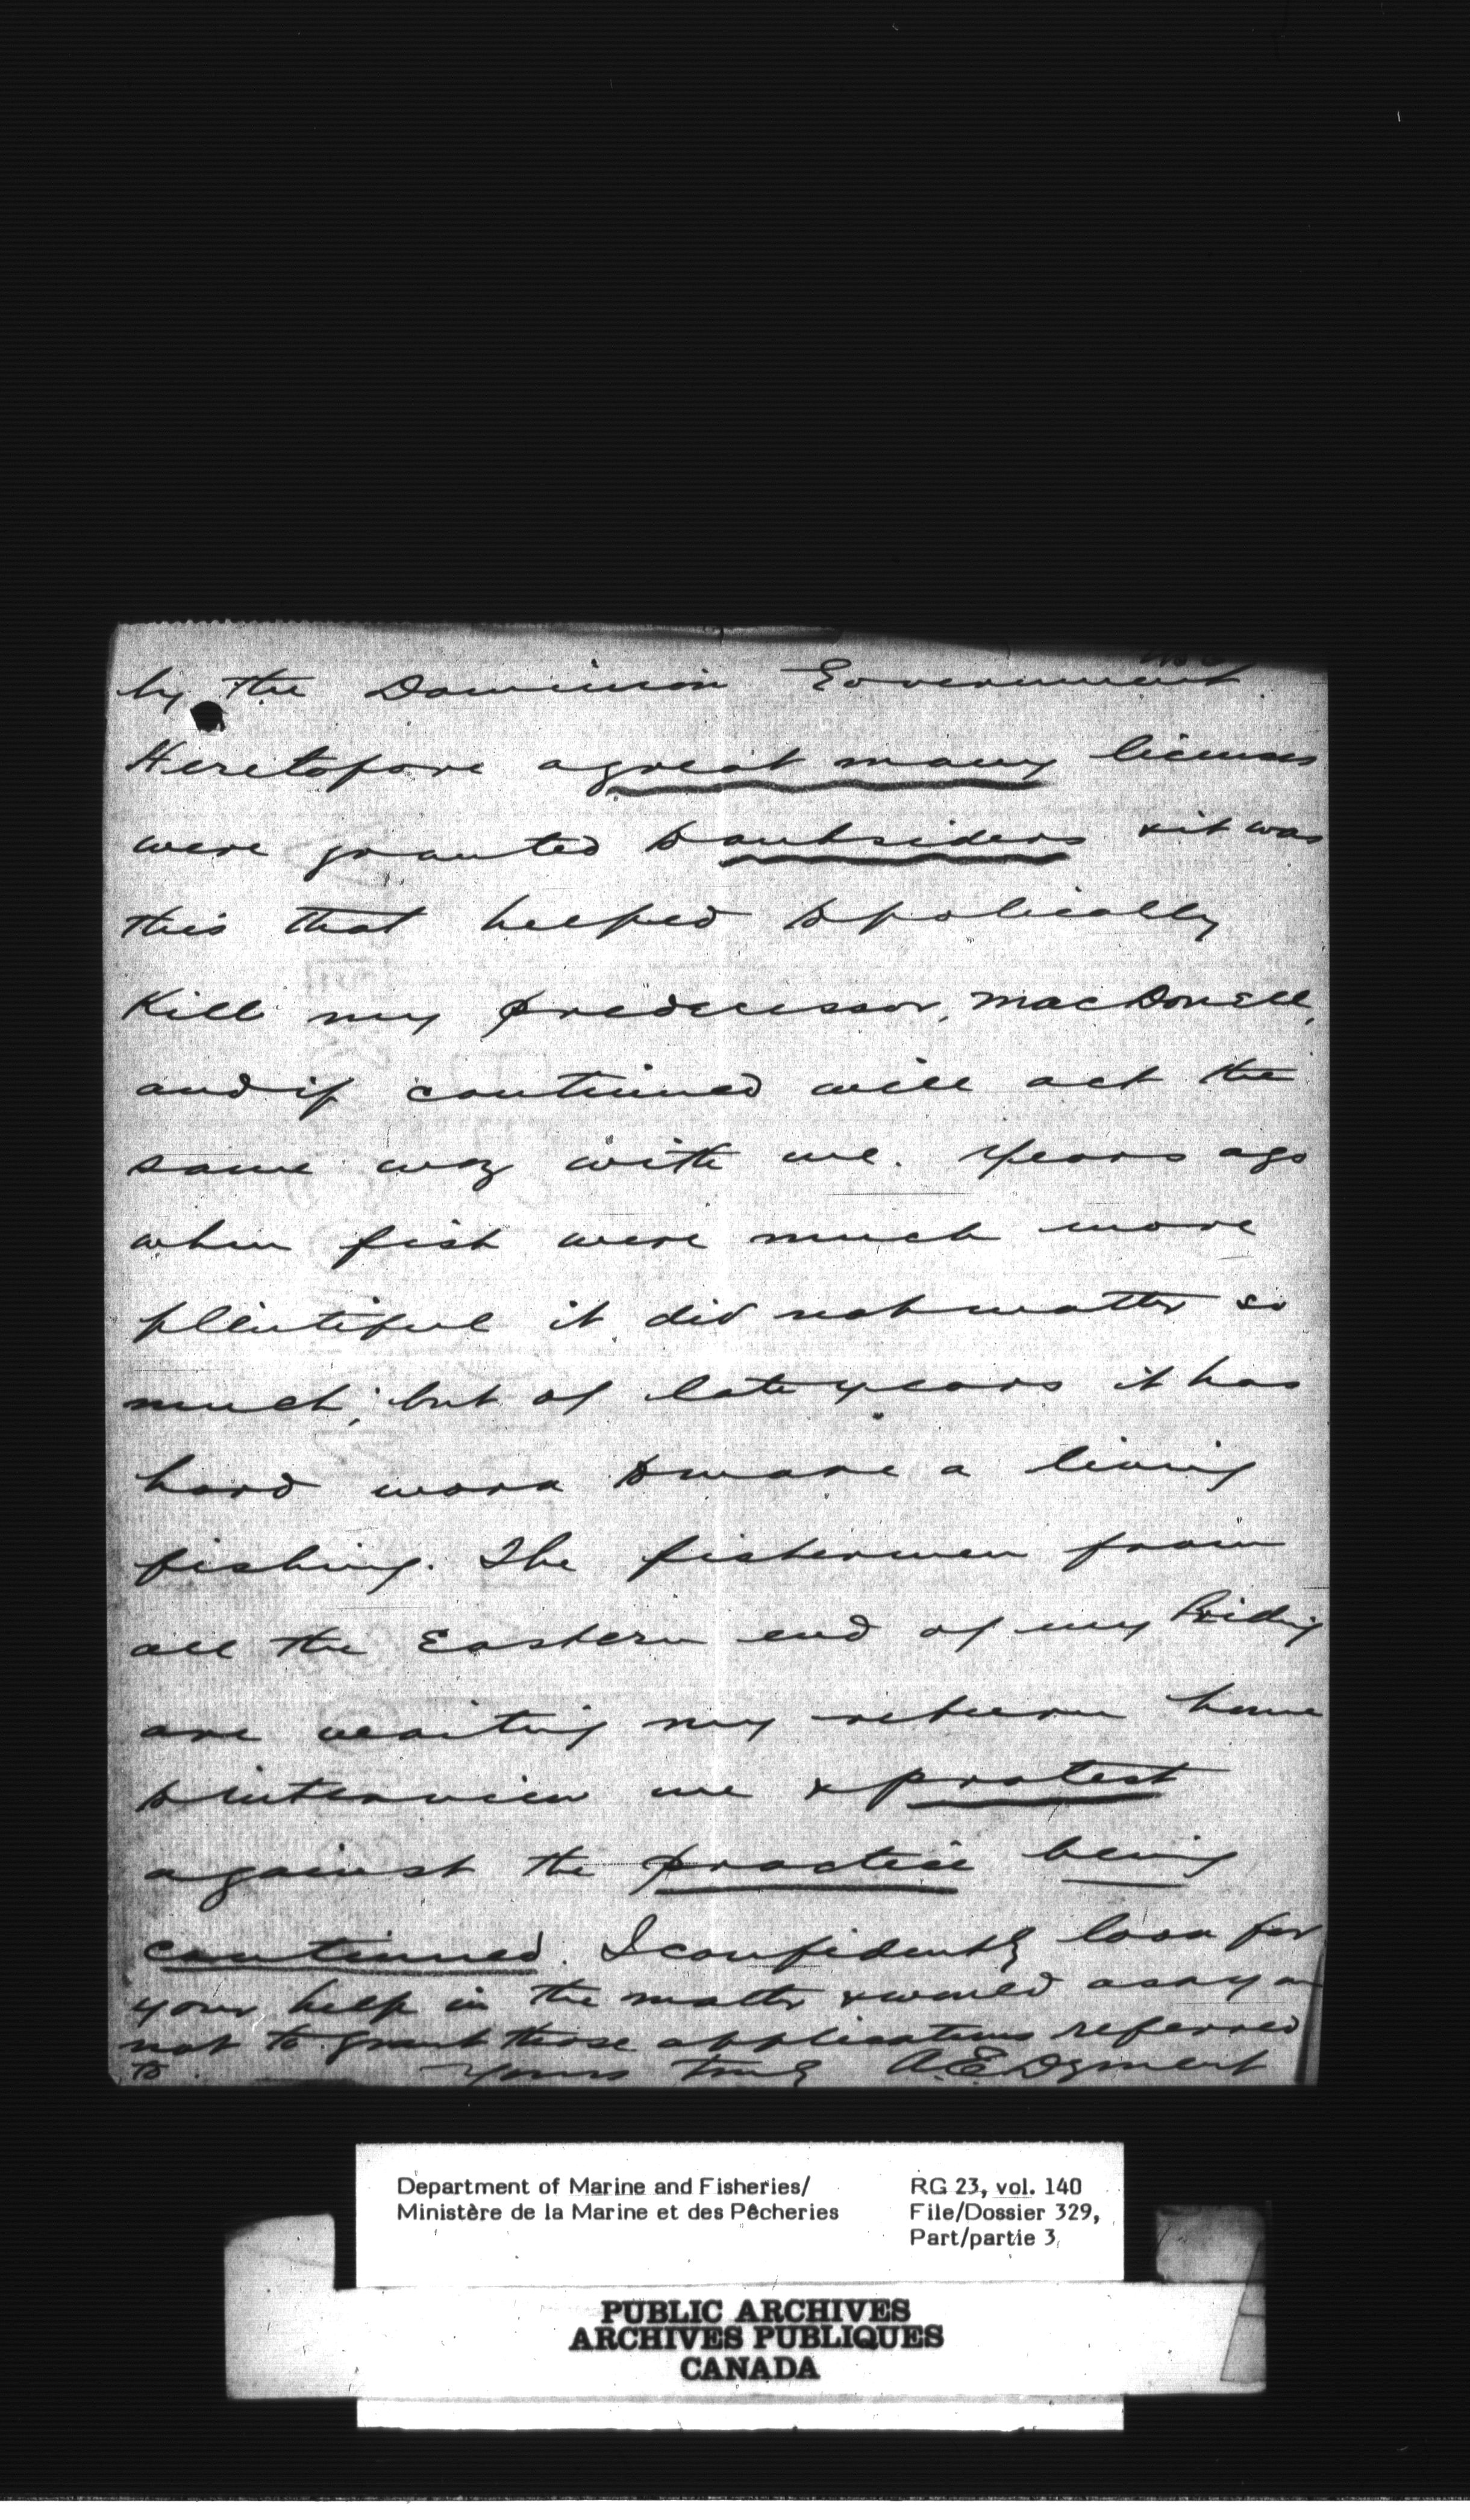 by the Dominion Government
Heretofore a great many licenses
were granted to outsiders & it was
this that helped to polically
Kill my predecessor, MacDonell,
and if continued will act the
same way with me. Years ago
when fish were much more
plentiful it did not matter so
much, but of late years it has
hard work to make a living
fishing. The fishermen from
all the Eastern end of my Riding
are waiting my return home
to interview me & protest
against the practice being
continued. I confidently look for
your help in the matter & would ask you
not to grant those applications referred
to. Yours truly A.E. Dyment
Department of Marine and Fisheries/
Ministère de la Marine et des Pêcheries
RG 23, vol. 140
File/Dossier 329,
Part/partie 3
PUBLIC ARCHIVES
ARCHIVES PUBLIQUES
CANADA